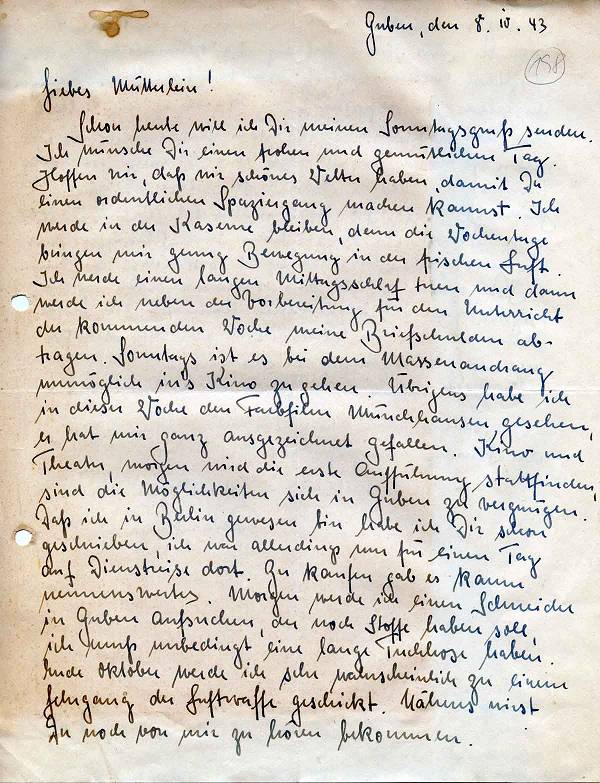 Guben, den 8. IV. 43
198
Liebes Mütterlein!
Schon heute will ich Dir meinen Sonntagsgruß senden.
Ich wünsche Dir einen frohen und gemütlichen Tag.
Hoffen wir, daß wir schönes Wetter haben, damit Du
einen ordentlichen Spaziergang machen kannst. Ich
werde in der Kaserne bleiben, denn die Wochentage
bringen mir genug Bewegung in der frischen Luft.
Ich werde einen langen Mittagsschlaf tuen und dann
werde ich neben der Vorbereitung für den Unterricht
der kommenden Woche meine Briefschulden ab-
tragen. Sonntags ist es bei dem Massenandrang
unmöglich ins Kino zu gehen. Übrigens habe ich
in dieser Woche den Farbfilm Münchhausen gesehen,
er hat mir ganz ausgezeichnet gefallen. Kino und
Theater, morgen wird die erste Aufführung stattfinden,
sind die Möglichkeiten sich in Guben zu vergnügen.
Daß ich in Berlin gewesen bin habe ich Dir schon
geschrieben, ich war allerdings nur für einen Tag
auf Dienstreise dort. Zu kaufen gab es kaum
nennenswertes. Morgen werde ich einen Schneider
in Guben aufsuchen, der noch Stoffe haben soll,
ich muß unbedingt eine lange Tuchhose haben.
Ende Oktober werde ich sehr wahrscheinlich zu einem
Lehrgang der Luftwaffe geschickt. Näheres wirst
Du noch von mir zu hören bekommen.